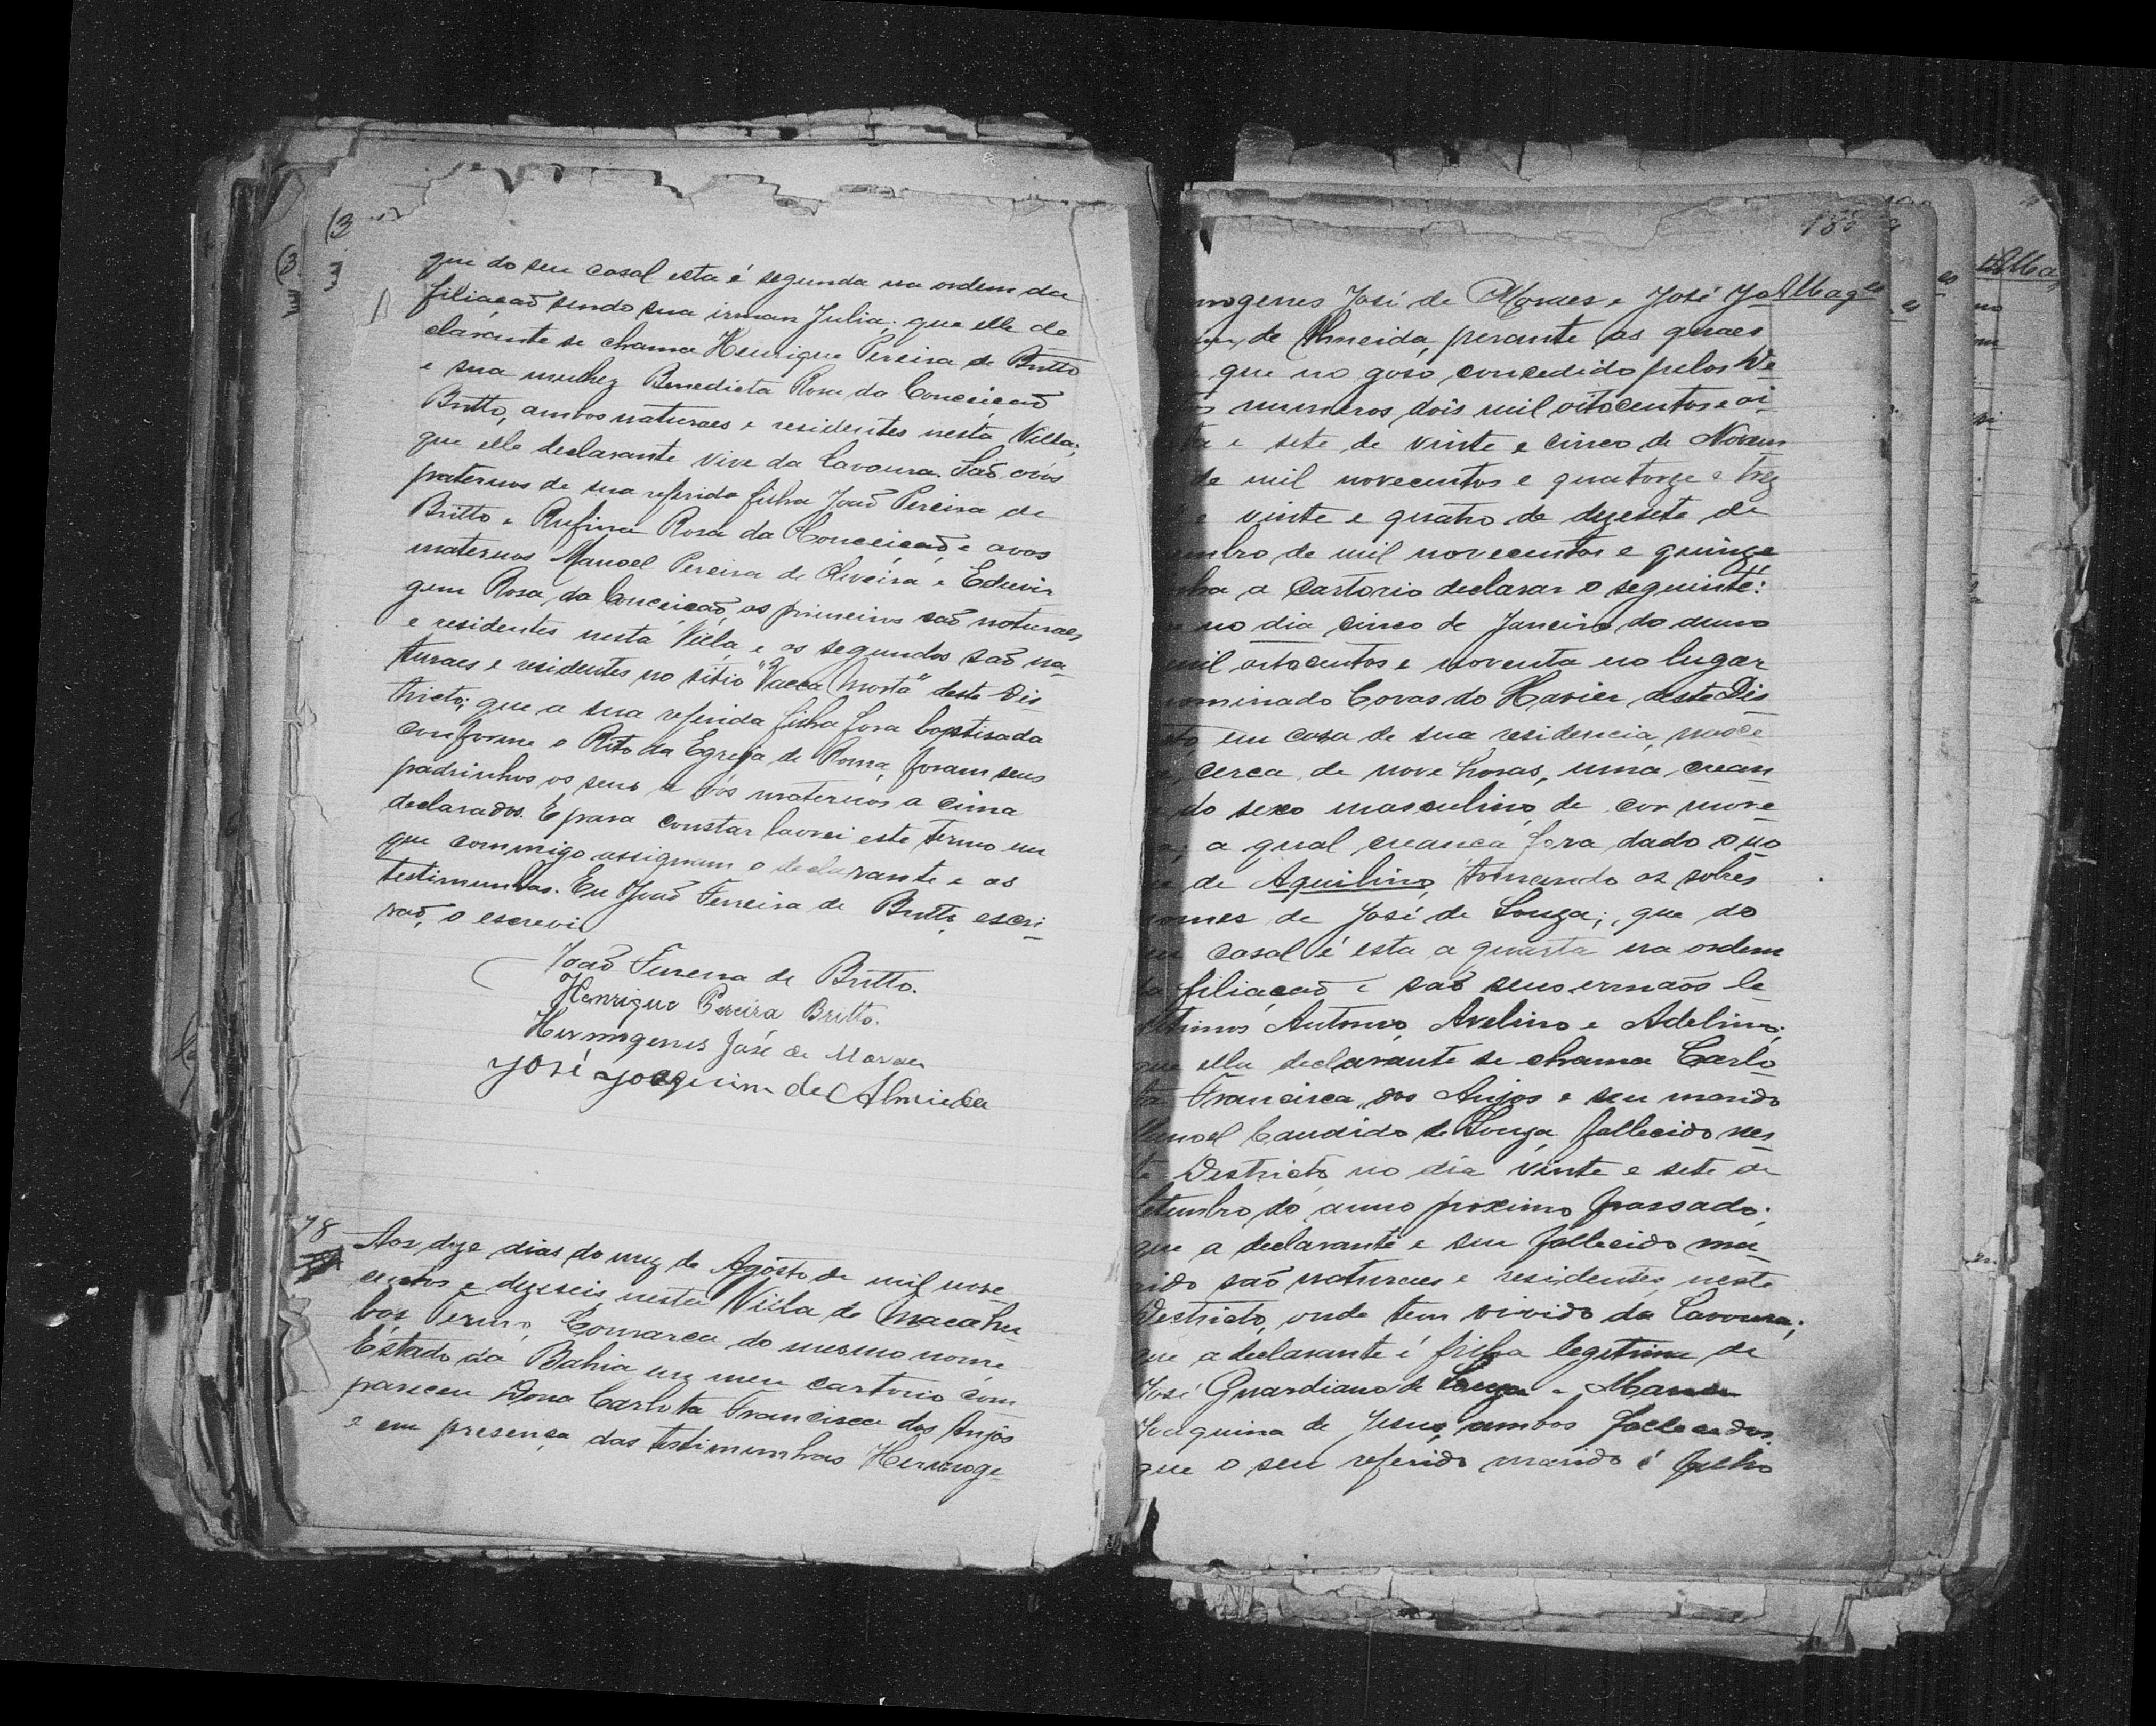 que do seu casal esta é segunda na ordem da
filiação sendo sua irman Julia; que elle de
clarante se chama Henrique Pereira de Britto
e sua mulhez Benedicta Rosa da Conceição
Britto, ambos naturaes e residentes nesta Villa;
que elle declarante vive da lavoura. São avós
paternos de sua referida filha João Pereira de
Britto e Rufina Rosa da Conceição e avos
maternos Manoel Pereira de Oliveira e Eduvir
gem Rosa da Conceição, os primeiros são naturaes
e residentes nesta Villa e os segundos são na
turaes e residentes no sitio "Vacca Morta" deste Dis
tricto; que a sua referida filha fora baptisada
conforme o Rito da Egreja de Roma, foram seus
padrinhos os seus a vós maternos a cima
declarados. E para constar lavrei este termo em
que commigo assignam o declarante e as
testimunhas. Eu João Ferreira de Britto, escri-
vaõ, o escrevi
João Ferreira de Britto.
Henrique Pereira Britto.
Hermogenes José de Moraes
José Joaquim de Almeida
78
Aos doze dias do mez de Agosto de mil nove
centos e dezeseis nesta Villa de Macahu
bas, Termo, Comarca do mesmo nome
Estado da Bahia em meu cartorio com
pareceu Dona Carlota Francisca dos Anjos
e em presença das testimunhas Hermoge
mogenes José de Moraes e José Jo
de Almeida, perante as quaes
que no goso concedido pelos De-
numeros dois mil oitocentos e oi-
ta e sete de vinte e cinco de Novem
de mil novecentos e quatorze e trez
e vinte e quatro de dezesete de
embro de mil novecentos e quinze
nha a Cartorio declarar o seguinte:
no dia cinco de Janeiro do anno
mil oitocentos e noventa no lugar
nominado Covas do Xavier, deste Dis
to em casa de sua residencia, nasce-
cerca de nove horas, uma crean
do sexo masculino, de cor more
a qual creança fora dado o no
de Aquilino, tomando os sobre
nomes de José de Souza; que do
casal é esta a quarta na ordem
filiação e são seus ermãos le
gitimos Antonio, Avelino e Adelino;
que ella declarante se chama Carlo
ta Francisca dos Anjos e seu marido
Manoel Candido de Souza, fallecido nes
te Destricto no dia vinte e sete de
Setembro do anno proximo passado;
que a declarante e seu fallecido ma
rido são naturaes e residentes neste
Destricto, onde tem vivido da lavoura;
que a declarante é filha legitima de
José Guardiano de Souza e Maria
Joaquina de Jesus, ambos fallecidos;
que o seu referido marido é filho